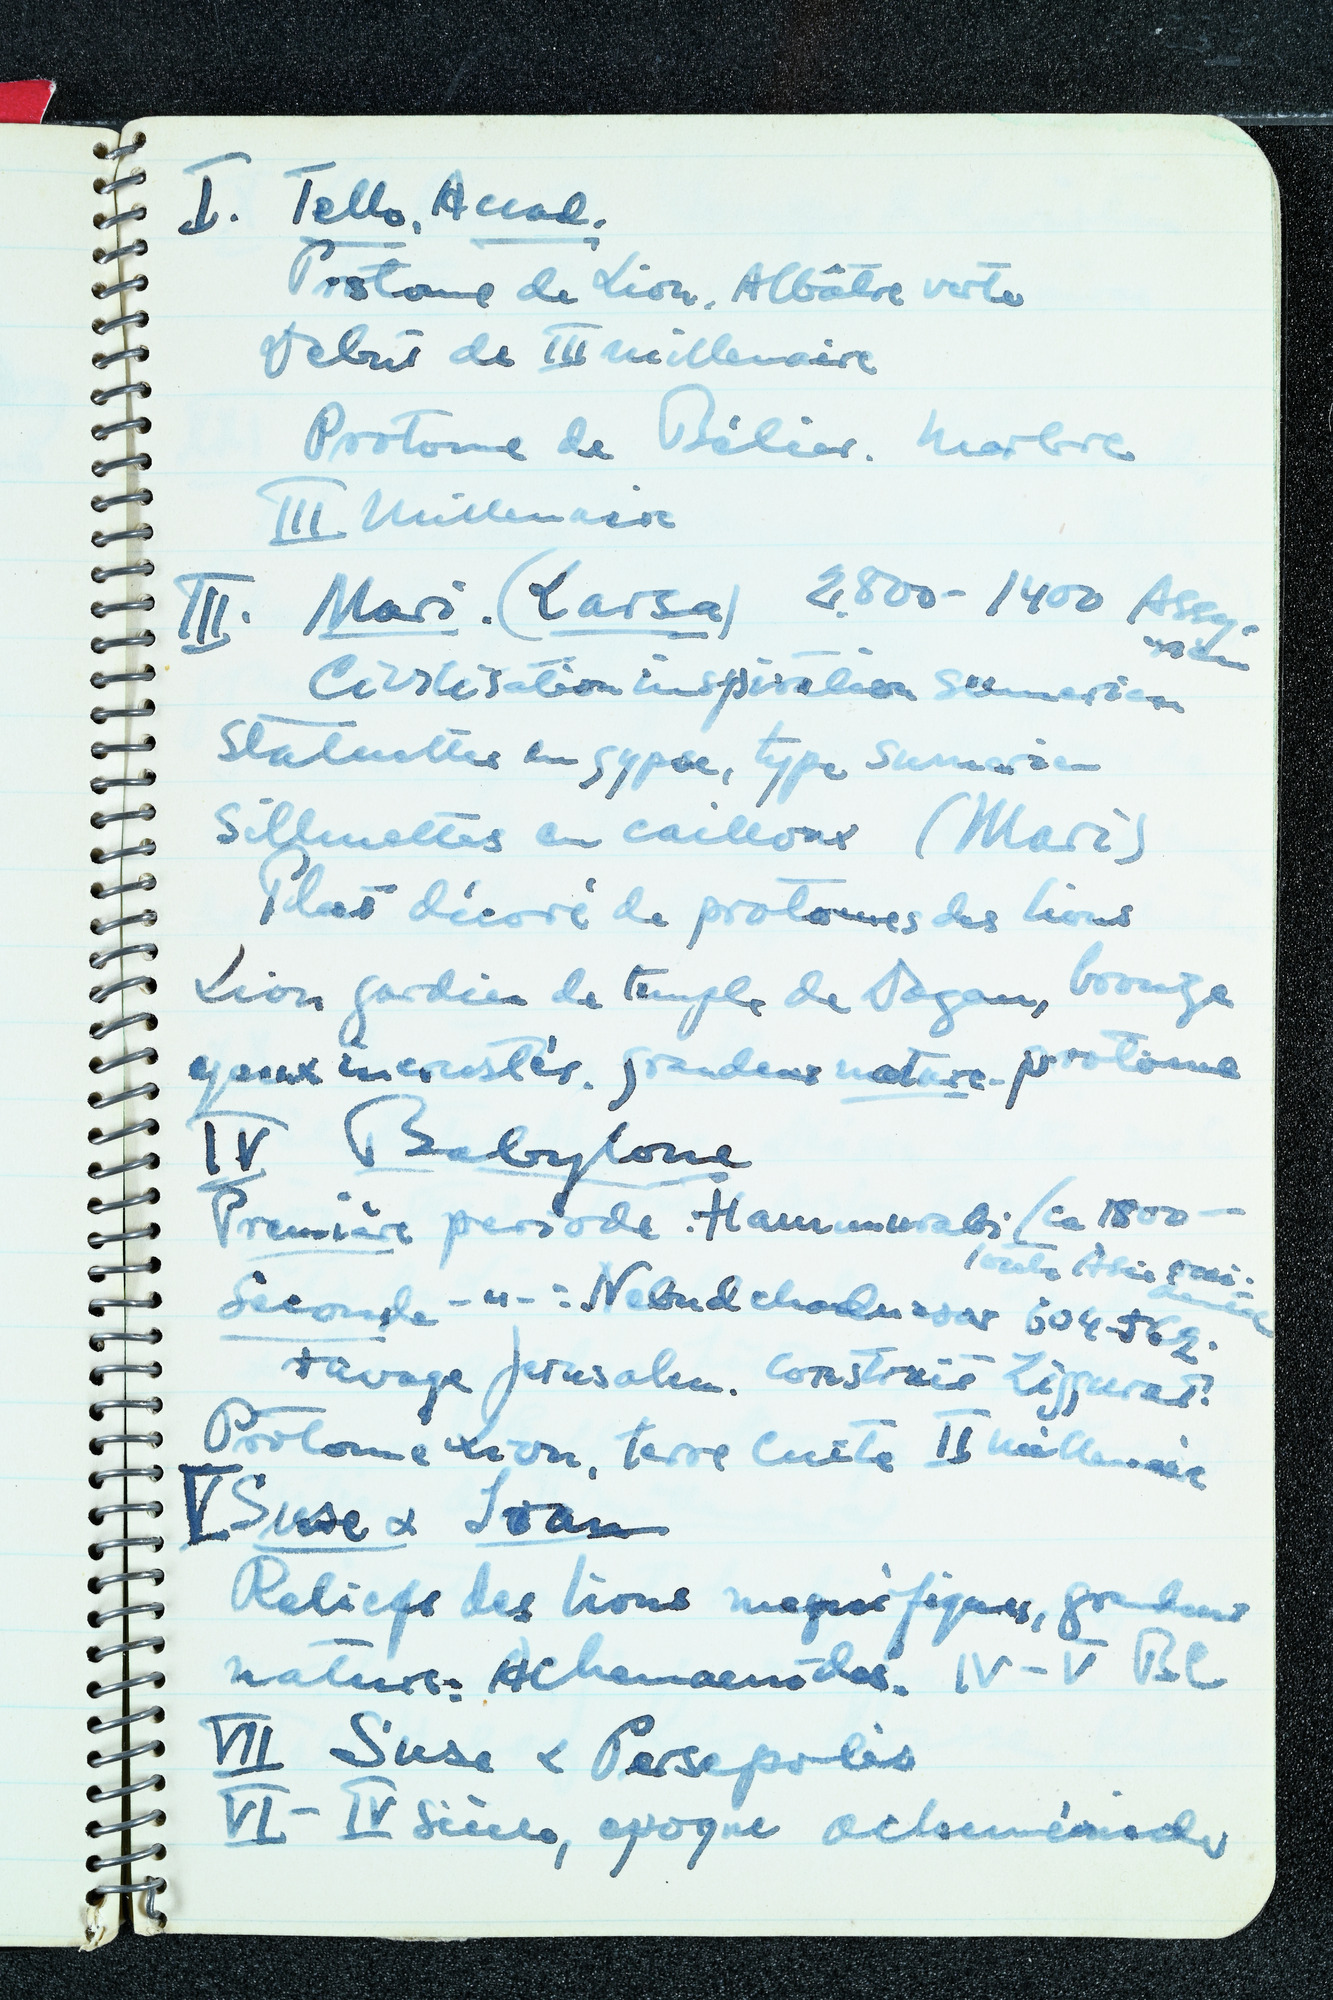 I. Tello, Accad.
Protome de Lion. Albâtre verte
Debut de III millenaire
Protome de Bélier. Marbre
III Millenaire
III. Mari. (Larsa) 2.800-1400 Assy-
rien
Civilisation inspiration sumerien
Statuettes en gypse, type sumerien
Silhuettes en cailloux (Mari)
Plat décoré de protomes des lions
Lion gardien de temple de Dagan, bronze
yeux incrustés. grandeur nature. protome
IV Babylone
Première periode. Hammurabi (ca 1800 —
toute Asie
Seconde -"-: Nebudchadnesar 604-562.
ravage Jerusalem. construit Ziggurat.
Protome Lion, terre cuite II millenaire
V Suse & Iran
Reliefs des lions magnifiques, grandeur
nature: Achemaenides. IV-V BC
VII Suse & Persepolis
VI-IV Siècle, epoque acheménide